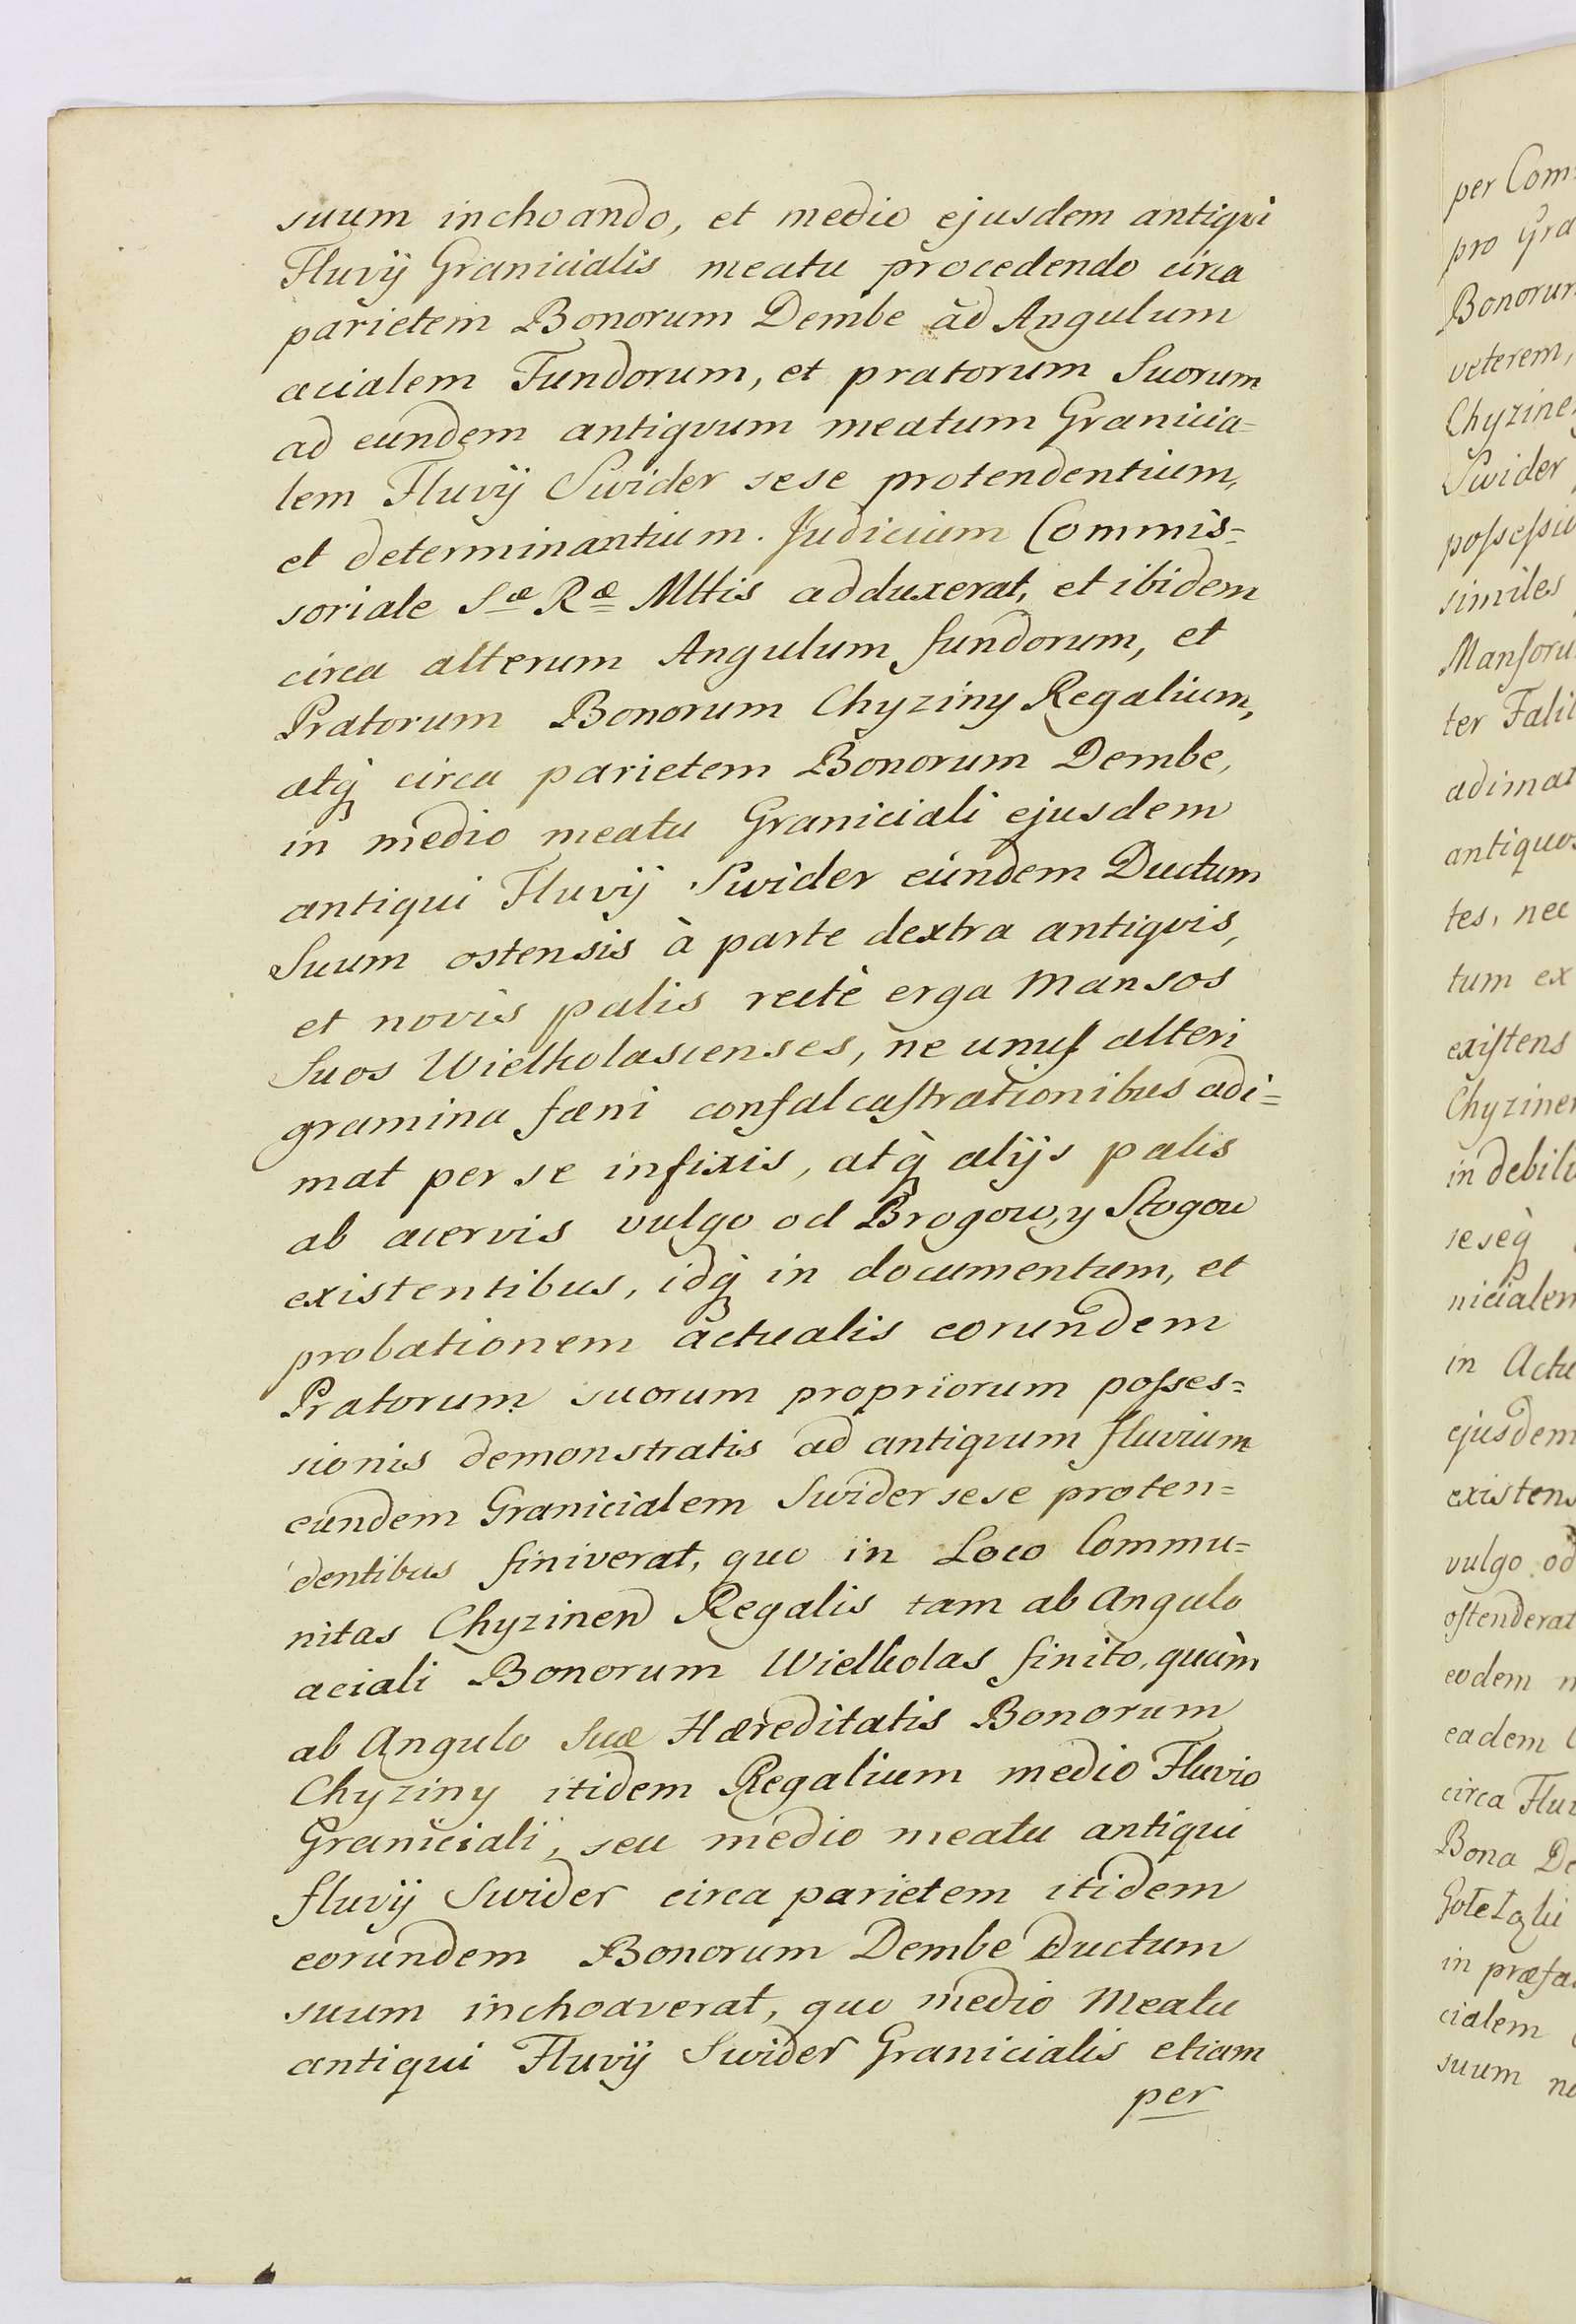 suum inchoando, et medio ejusdem antiqui
Fluvij Granicialis meatu procedendo circa
parietem Bonorum Dembe ad Angulum
acialem Fundorum, et pratorum Suorum
ad eundem antiqvum meatum Granicia=
lem Fluvij Swider sese protendentium,
et determinantium. Judicium Commis=
soriale Sæ Ræ Mttis adduxerat, et ibidem
circa alterum Angulum fundorum, et
Pratorum Bonorum Chyziny Regalium,
atq̀ circa parietem Bonorum Dembe,
in medio meatu Graniciali ejusdem
antiqui Fluvij Swider eundem Ductum
Suum ostensis à parte dextra antiqvis,
et novis palis rectè erga Mansos
Suos Wielkolascenses, ne unus alteri
gramina fæni confalcastrationibus adi=
mat per se infixis, atq̀ alijs palis
ab acervis vulgo od Brogow, y Stogow
existentibus, idq̀ in documentum, et
probationem actualis eorundem
Pratorum suorum propriorum posses=
sionis demonstratis ad antiqvum fluvium
eundem Granicialem Swider sese proten=
dentibus finiverat, quo in Loco Commu=
nitas Chyzinen Regalis tam ab Angulo
aciali Bonorum Wielkolas finito, quàm
ab Angulo Suæ Hæreditatis Bonorum
Chyziny itidem Regalium medio Fluvio
Graniciali, seu medio meatu antiqui
fluvij Swider circa parietem itidem
eorundem Bonorum Dembe Ductum
suum inchoaverat, quo medio Meatu
antiqui Fluvij Swider Granicialis etiam
per
per Com
pro Gra
Bonorum
veterem,
Chyzine
Swider
possessio
similes
Mansoru
ter Falc
adimat
antiquos
tes, nec
tum ex
existens
Chyzinen
in debil
seseq̀
nicialem
in Actu
ejusdem
existens
vulgo od
ostenderat
eodem
eadem
circa Flu
Bona De
in præfa
cialem
suum